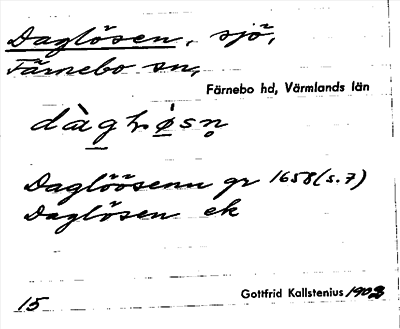 Daglösen, sjö,
Färnebo sn,
Färnebo hd, Värmlands län
Daglöösenn gr 1658 (s. 7)
Daglösen ek
15
Gottfrid Kallstenius 1903